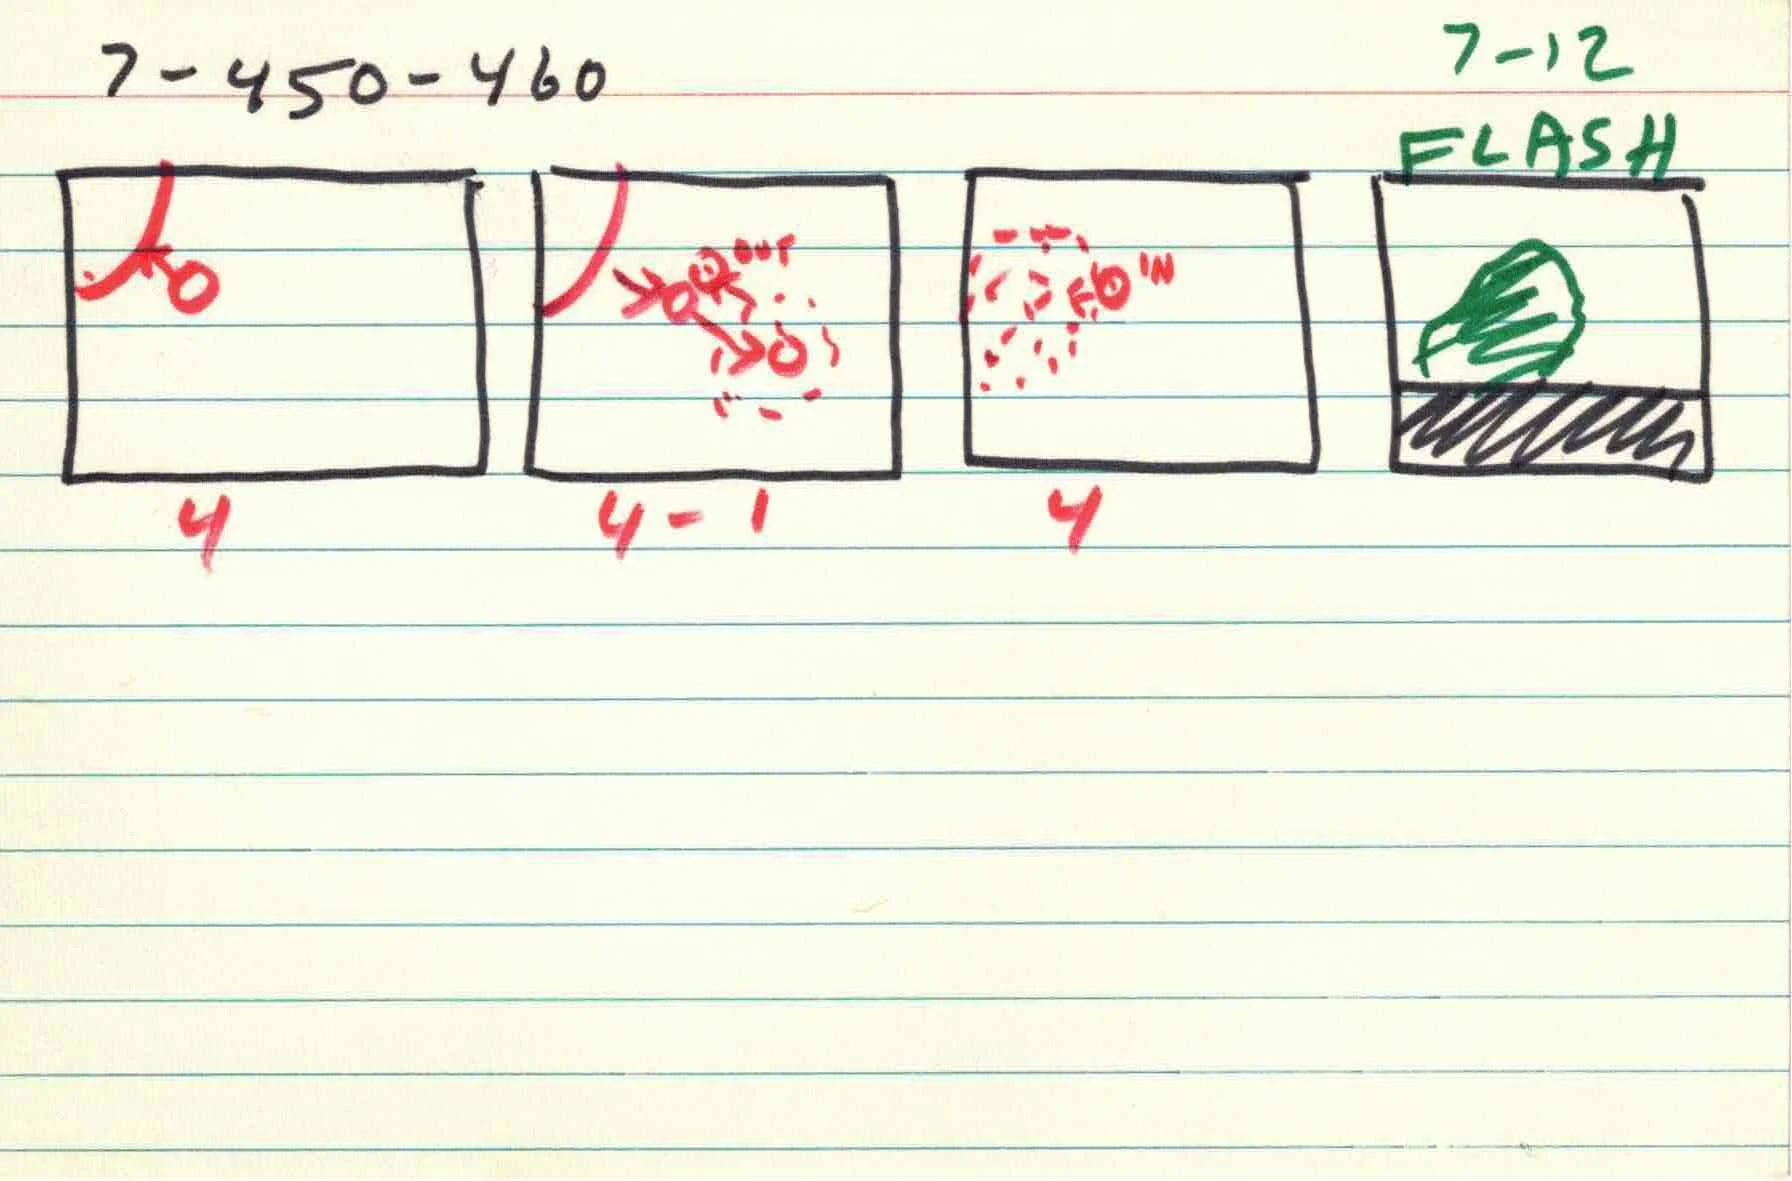 7-450-460
7-12
FLASH
OUT
IN
4
4-1
4